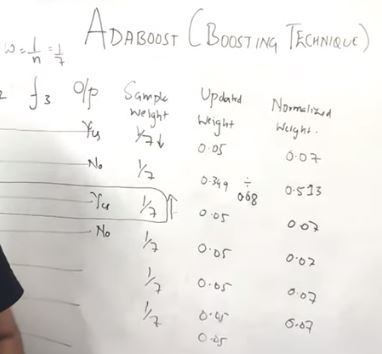 ADABOOST (BOOSTING TECHNIQUE)
w = 1/n = 1/7
f3 O/p Sample Weight Updated Weight Normalized Weight.
Yes 1/7 ↓ 0.05 0.07
No 1/7 0.349 ÷ 0.68 0.513
Yes 1/7 ↑ 0.05 0.07
No 1/7 0.05 0.07
1/7 0.05 0.07
1/7 0.05 0.07
0.05